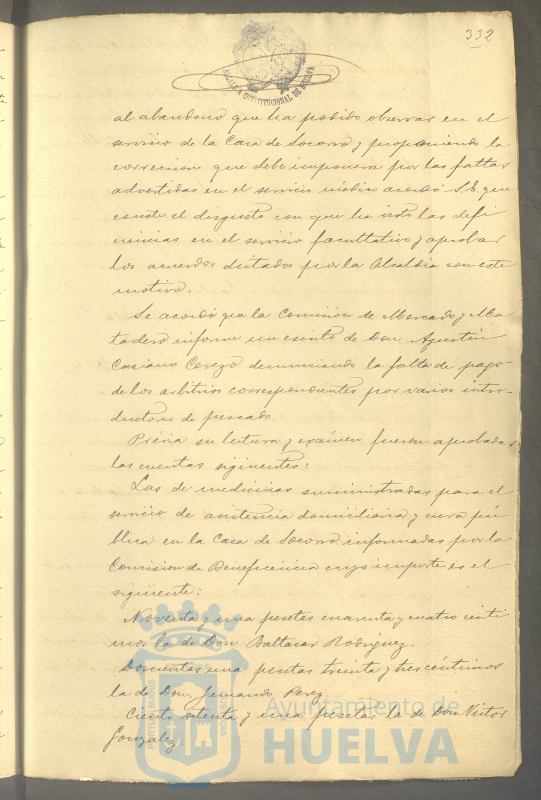 332
ALCALDIA CONSTITUCIONAL DE HUELVA
al abandono que ha podido observar en el
servicio de la Casa de Socorro y proponiendo la
correccion que debe imponerse por las faltas
advertidas en el servicio médico acordó S.E. que
conste el desgusto con que ha visto las defi
ciencias en el servicio facultativo y aprobar
los acuerdos dictados por la Alcaldia con este
motivo.
Se acordó que la Comision de Mercado y Ma
tadero informe un escrito de Don Agustin
Casiano Cerezo denunciando la falta de pago
de los arbitrios correspondientes por varios intro-
ductores de pescado.
Prévia su lectura y exámen fueron aprobadas
las cuentas siguientes:
Las de medicinas suministradas para el
servicio de asistencia domiciliaria y cura pú
blica en la Casa de Socorro informadas por la
Comision de Beneficencia cuyo importe es el
siguiente:
Noventa y una pesetas cuarenta y cuatro cénti
mos la de Don Baltasar Rodriguez.
Doscientas una pesetas treinta y tres céntimos
la de Don Fernando Perez.
Ciento setenta y una pesetas la de Don Victor
Gonzalez.
Ayuntamiento de
HUELVA